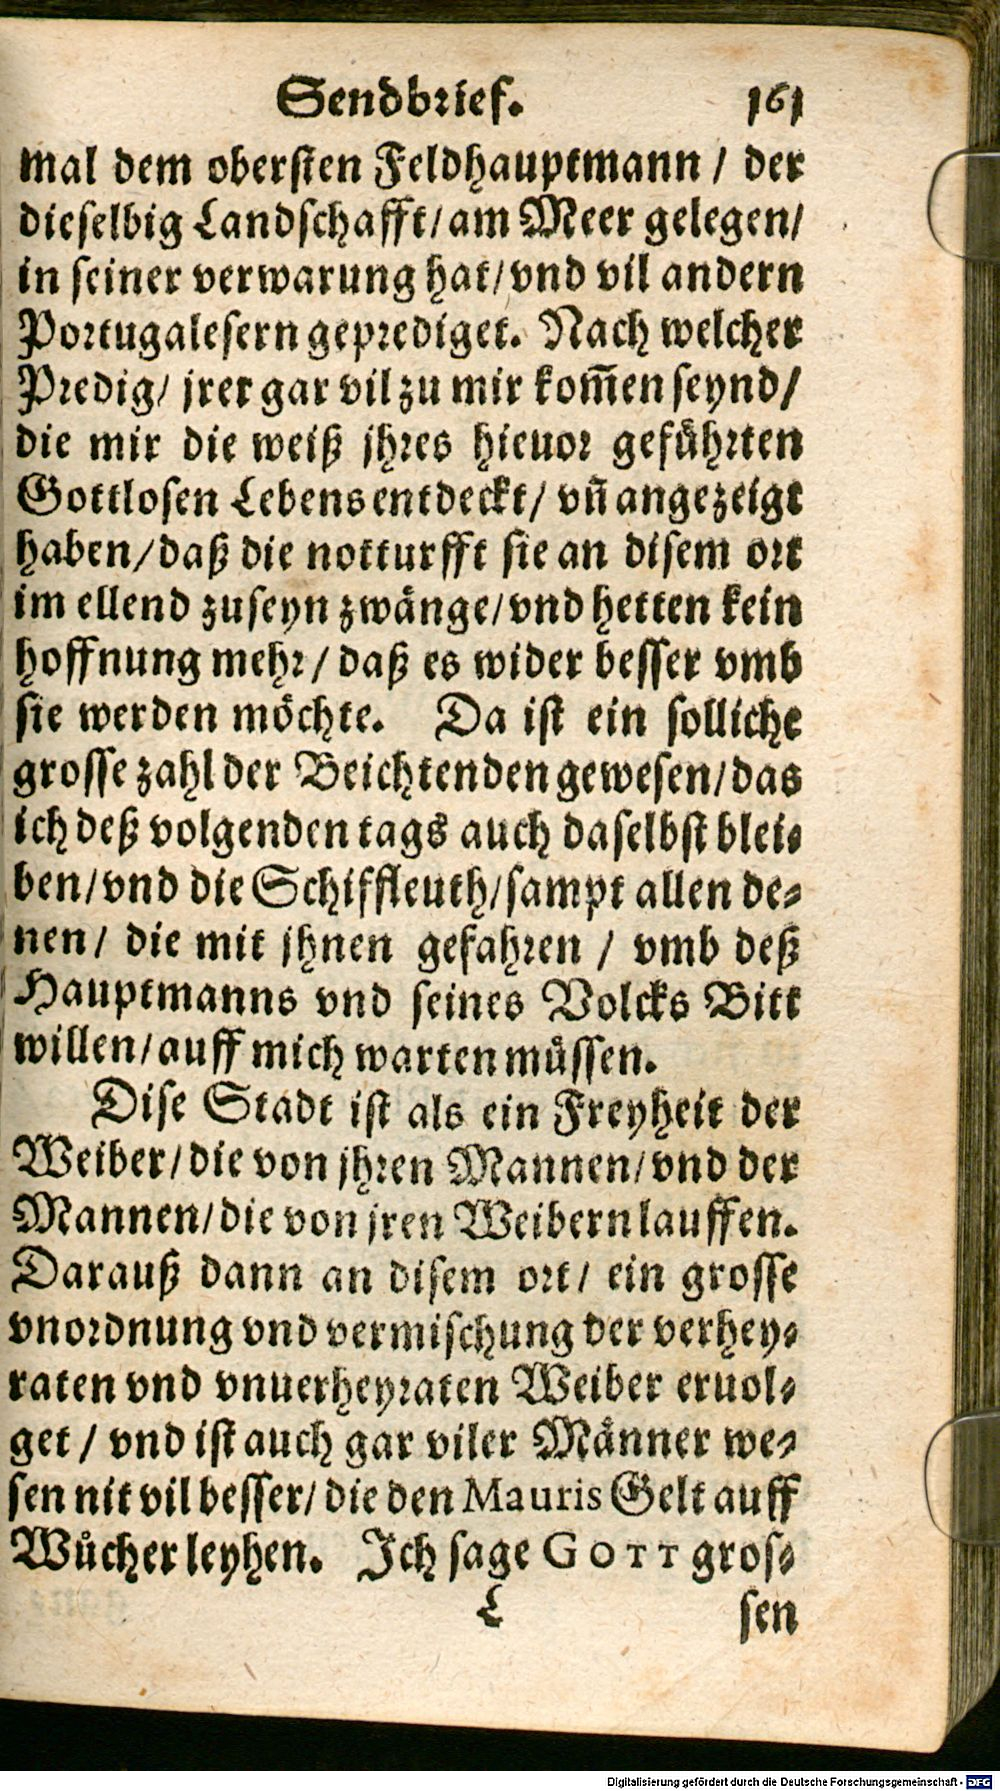 Sendbrief. 161
mal dem obersten Feldhauptmann / der
dieselbig Landschafft/ am Meer gelegen/
in seiner verwarung hat/ vnd vil andern
Portugalesern geprediget. Nach welcher
Predig/ jrer gar vil zu mir kom̃en seynd/
die mir die weiß jhres hieuor geführten
Gottlosen Lebens entdeckt/ vñ angezeigt
haben/ daß die notturfft sie an disem ort
im ellend zuseyn zwänge/ vnd hetten kein
hoffnung mehr/ daß es wider besser vmb
sie werden möchte. Da ist ein solliche
grosse zahl der Beichtenden gewesen/ das
ich deß volgenden tags auch daselbst blei-
ben/ vnd die Schiffleuth/ sampt allen de-
nen/ die mit jhnen gefahren / vmb deß
Hauptmanns vnd seines Volcks Bitt
willen/ auff mich warten müssen.
Dise Stadt ist als ein Freyheit der
Weiber/ die von jhren Mannen/ vnd der
Mannen/ die von jren Weibern lauffen.
Darauß dann an disem ort/ ein grosse
vnordnung vnd vermischung der verhey-
raten vnd vnuerheyraten Weiber eruol-
get / vnd ist auch gar viler Männer we-
sen nit vil besser/ die den Mauris Gelt auff
Wůcher leyhen. Ich sage GOTT gros-
L sen
Digitalisierung gefördert durch die Deutsche Forschungsgemeinschaft - DFG